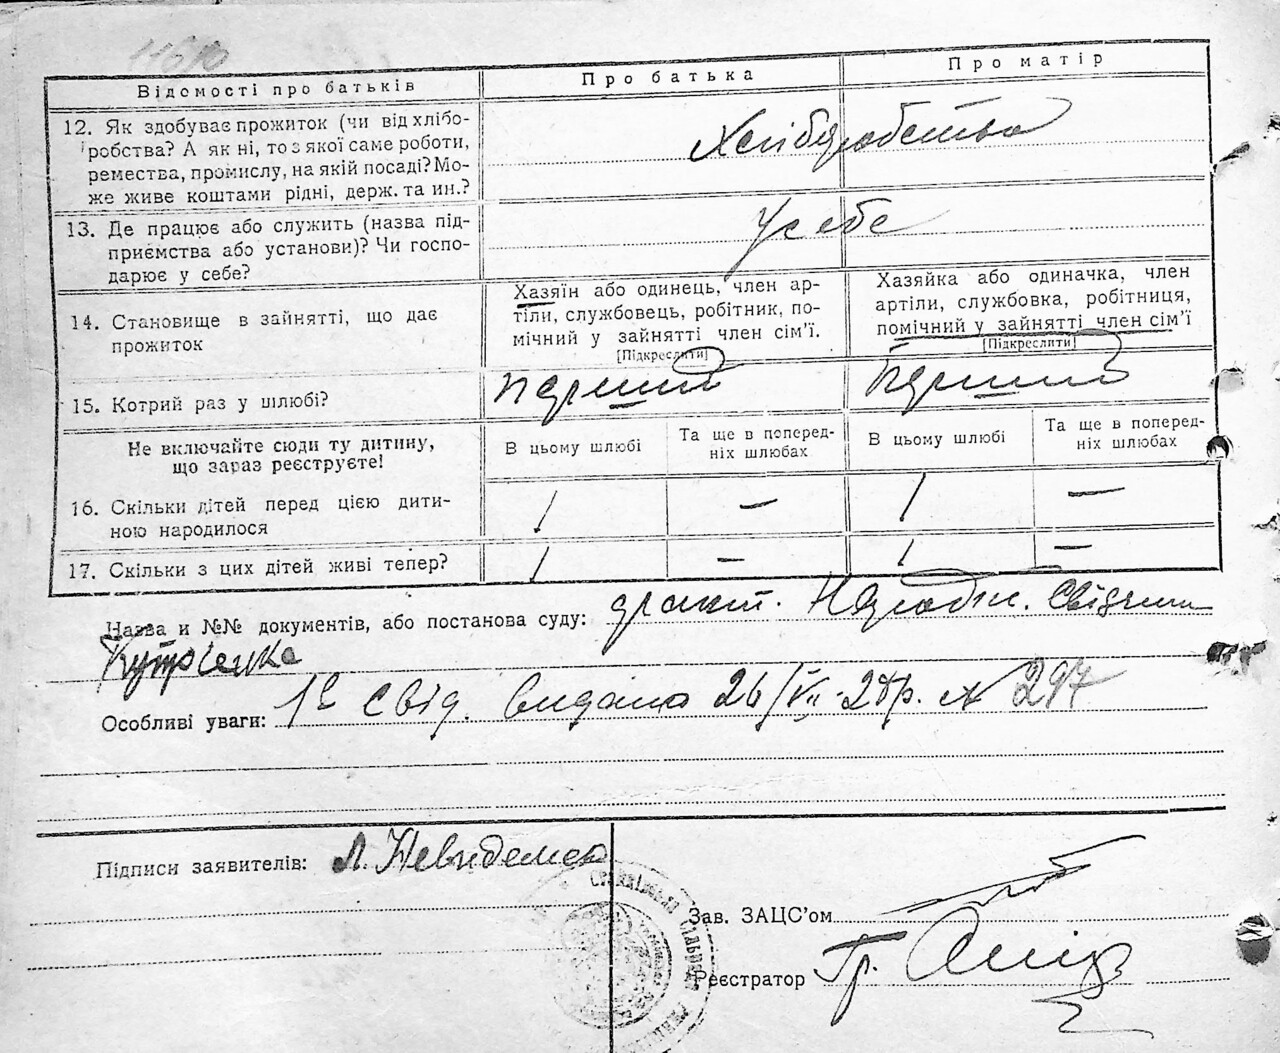 11610
Відомості про батьків
Про батька
Про матір
12. Як здобуває прожиток (чи від хлібо-
робства? А як ні, то з якої саме роботи,
ремества, промислу, на якій посаді? Мо-
же живе коштами рідні, держ. та ин.?
Хліборобство
13. Де працює або служить (назва під-
приємства або установи)? Чи госпо-
дарює у себе?
У себе
14. Становище в зайнятті, що дає
прожиток
Хазяїн або одинець, член ар-
тіли, службовець, робітник, по-
мічний у зайнятті член сім'ї.
[Підкреслити]
Хазяйка або одиначка, член
артіли, службовка, робітниця,
помічний у зайнятті член сім'ї
[Підкреслити]
15. Котрий раз у шлюбі?
перший
перший
Не включайте сюди ту дитину,
що зараз реєструєте!
В цьому шлюбі
Та ще в поперед-
ніх шлюбах
В цьому шлюбі
Та ще в поперед-
ніх шлюбах
16. Скільки дітей перед цією дити-
ною народилося
1 — 1 —
17. Скільки з цих дітей живі тепер?
1 — 1 —
Назва и №№ документів, або постанова суду:
Особливі уваги: свід. видано 26/VII-28р. № 297
Підписи заявителів:
Зав. ЗАЦС'ом
Реєстратор Гр.